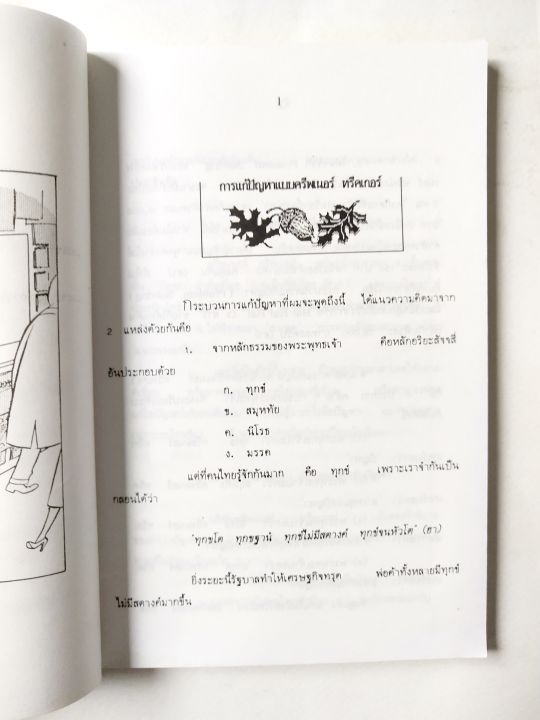 1
การแก้ปัญหาแบบครีพเนอร์ ทรีคเกอร์
กระบวนการแก้ปัญหาที่ผมจะพูดถึงนี้ ได้แนวความคิดมาจาก
2 แหล่งด้วยกันคือ
1. จากหลักธรรมของพระพุทธเจ้า คือหลักอริยะสัจจสี่
อันประกอบด้วย
ก. ทุกข์
ข. สมุหทัย
ค. นิโรธ
ง. มรรค
แต่ที่คนไทยรู้จักกันมาก คือ ทุกข์ เพราะเราจำกันเป็น
กลอนได้ว่า
"ทุกขโต ทุกขฐานํ ทุกข์ไม่มีสตางค์ ทุกข์จนหัวโต" (ฮา)
ยิ่งระยะนี้รัฐบาลทำให้เศรษฐกิจทรุด พ่อค้าทั้งหลายมีทุกข์
ไม่มีสตางค์มากขึ้น